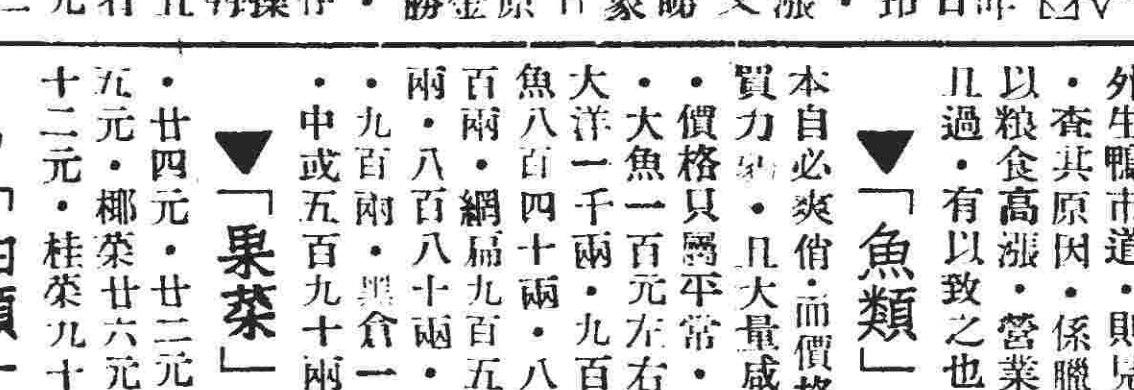 外生鴨市道・則見
・査其原因・係臘
以粮食高漲・營業
且過・有以致之也
▼「魚類」
本自必爽俏・而價格
買力弱・且大量咸
・價格只屬平常・
・大魚一百元左右
大洋一千兩・九百
魚八百四十兩・八
百兩・網扁九百五
兩・八百八十兩・
・九百兩・黑倉一
・中或五百九十兩
▼「果菜」
・廿四元・廿二元
五元・椰菜廿六元
十二元・桂菜九十